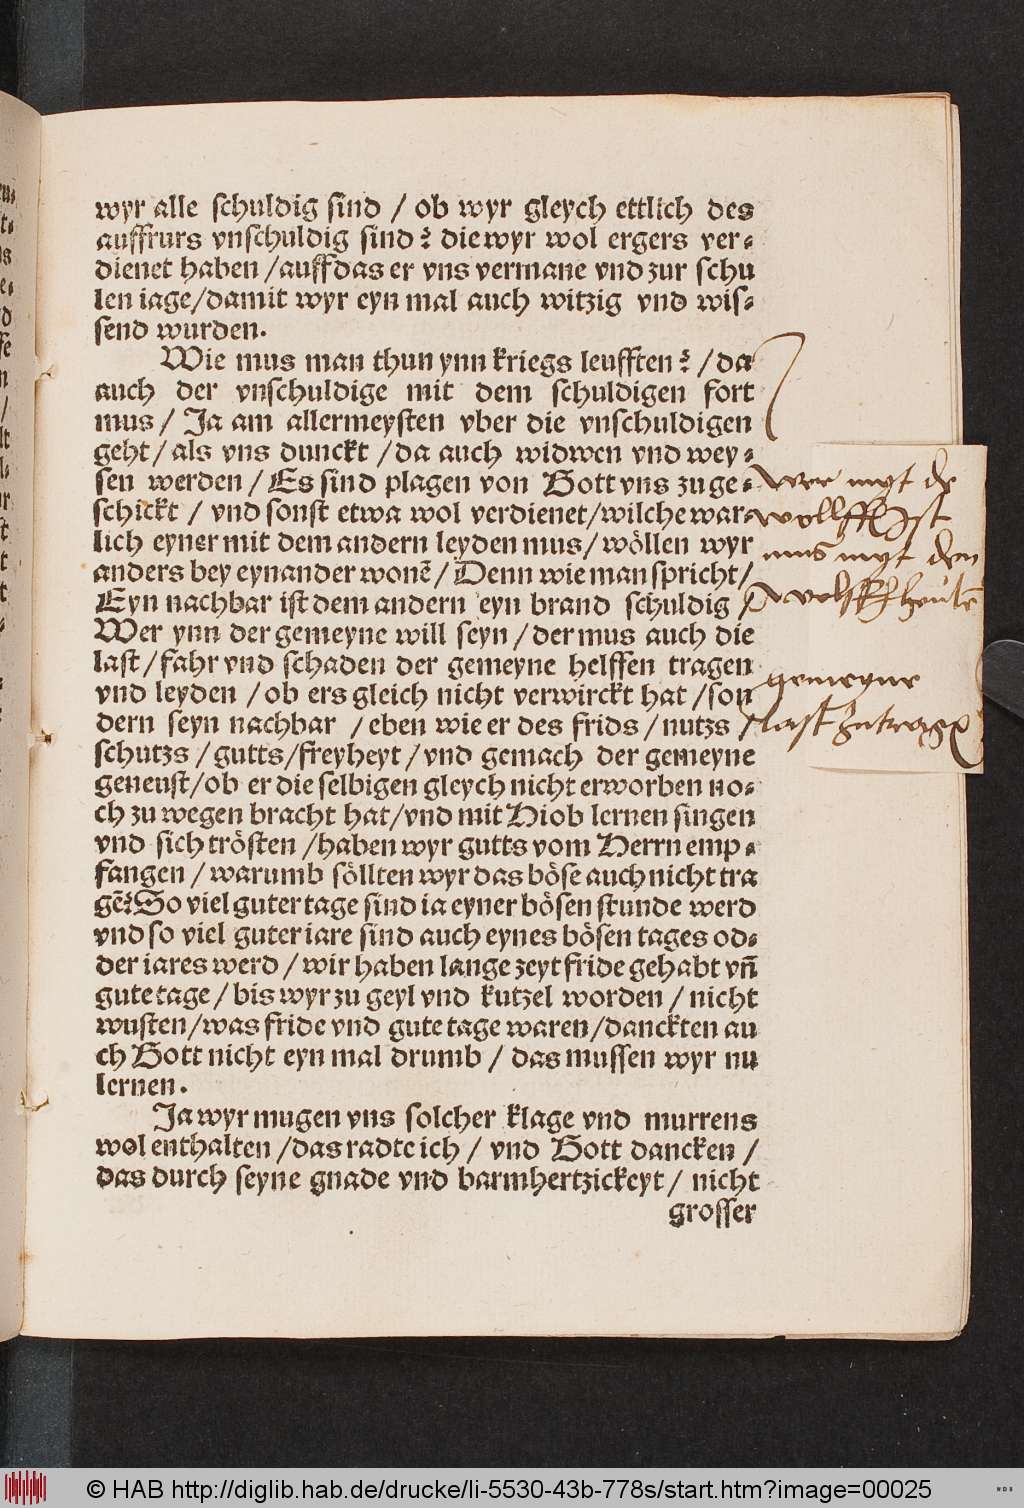 wyr alle schuldig sind / ob wyr gleych ettlich des
auffrurs vnschuldig sind? die wyr wol ergers ver-
dienet haben / auff das er vns vermane vnd zur schu
len iage / damit wyr eyn mal auch witzig vnd wis-
send wurden.
Wie mus man thun ynn kriegs leufften? / da
auch der vnschuldige mit dem schuldigen fort
mus / Ja am allermeysten vber die vnschuldigen
geht / als vns dunckt / da auch widwen vnd wey-
sen werden / Es sind plagen von Gott vns zu ge-
schickt / vnd sonst etwa wol verdienet / wilche war-
lich eyner mit dem andern leyden mus / wöllen wyr
anders bey eynander wonē / Denn wie man spricht /
Eyn nachbar ist dem andern eyn brand schuldig /
Wer ynn der gemeyne will seyn / der mus auch die
last / fahr vnd schaden der gemeyne helffen tragen
vnd leyden / ob ers gleich nicht verwirckt hat / son
dern seyn nachbar / eben wie er des frids / nutzs /
schutzs / gutts / freyheyt / vnd gemach der gemeyne
geneust / ob er die selbigen gleych nicht erworben no-
ch zu wegen bracht hat / vnd mit Hiob lernen singen
vnd sich trösten / haben wyr gutts vom Herrn emp-
fangen / warumb söllten wyr das böse auch nicht tra
gē? So viel guter tage sind ia eyner bösen stunde werd
vnd so viel guter iare sind auch eynes bösen tages od-
der iares werd / wir haben lange zeyt fride gehabt vn̄
gute tage / bis wyr zu geyl vnd kutzel worden / nicht
wusten / was fride vnd gute tage waren / danckten au
ch Gott nicht eyn mal drumb / das mussen wyr nu
lernen.
Ja wyr mugen vns solcher klage vnd murrens
wol enthalten / das radte ich / vnd Gott dancken /
das durch seyne gnade vnd barmhertzickeyt / nicht
grosser
wer myt de
wollff ist
mus myt den
wolffh heulē
gemeyne
last zu
© HAB http://diglib.hab.de/drucke/li-5530-43b-778s/start.htm?image=00025